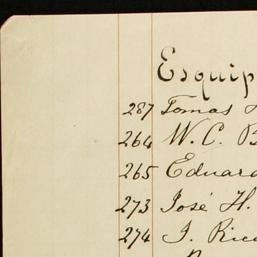 Esquip
287 Tomas
264 W. C. B
265 Eduard
273 José H.
274 J. Rica